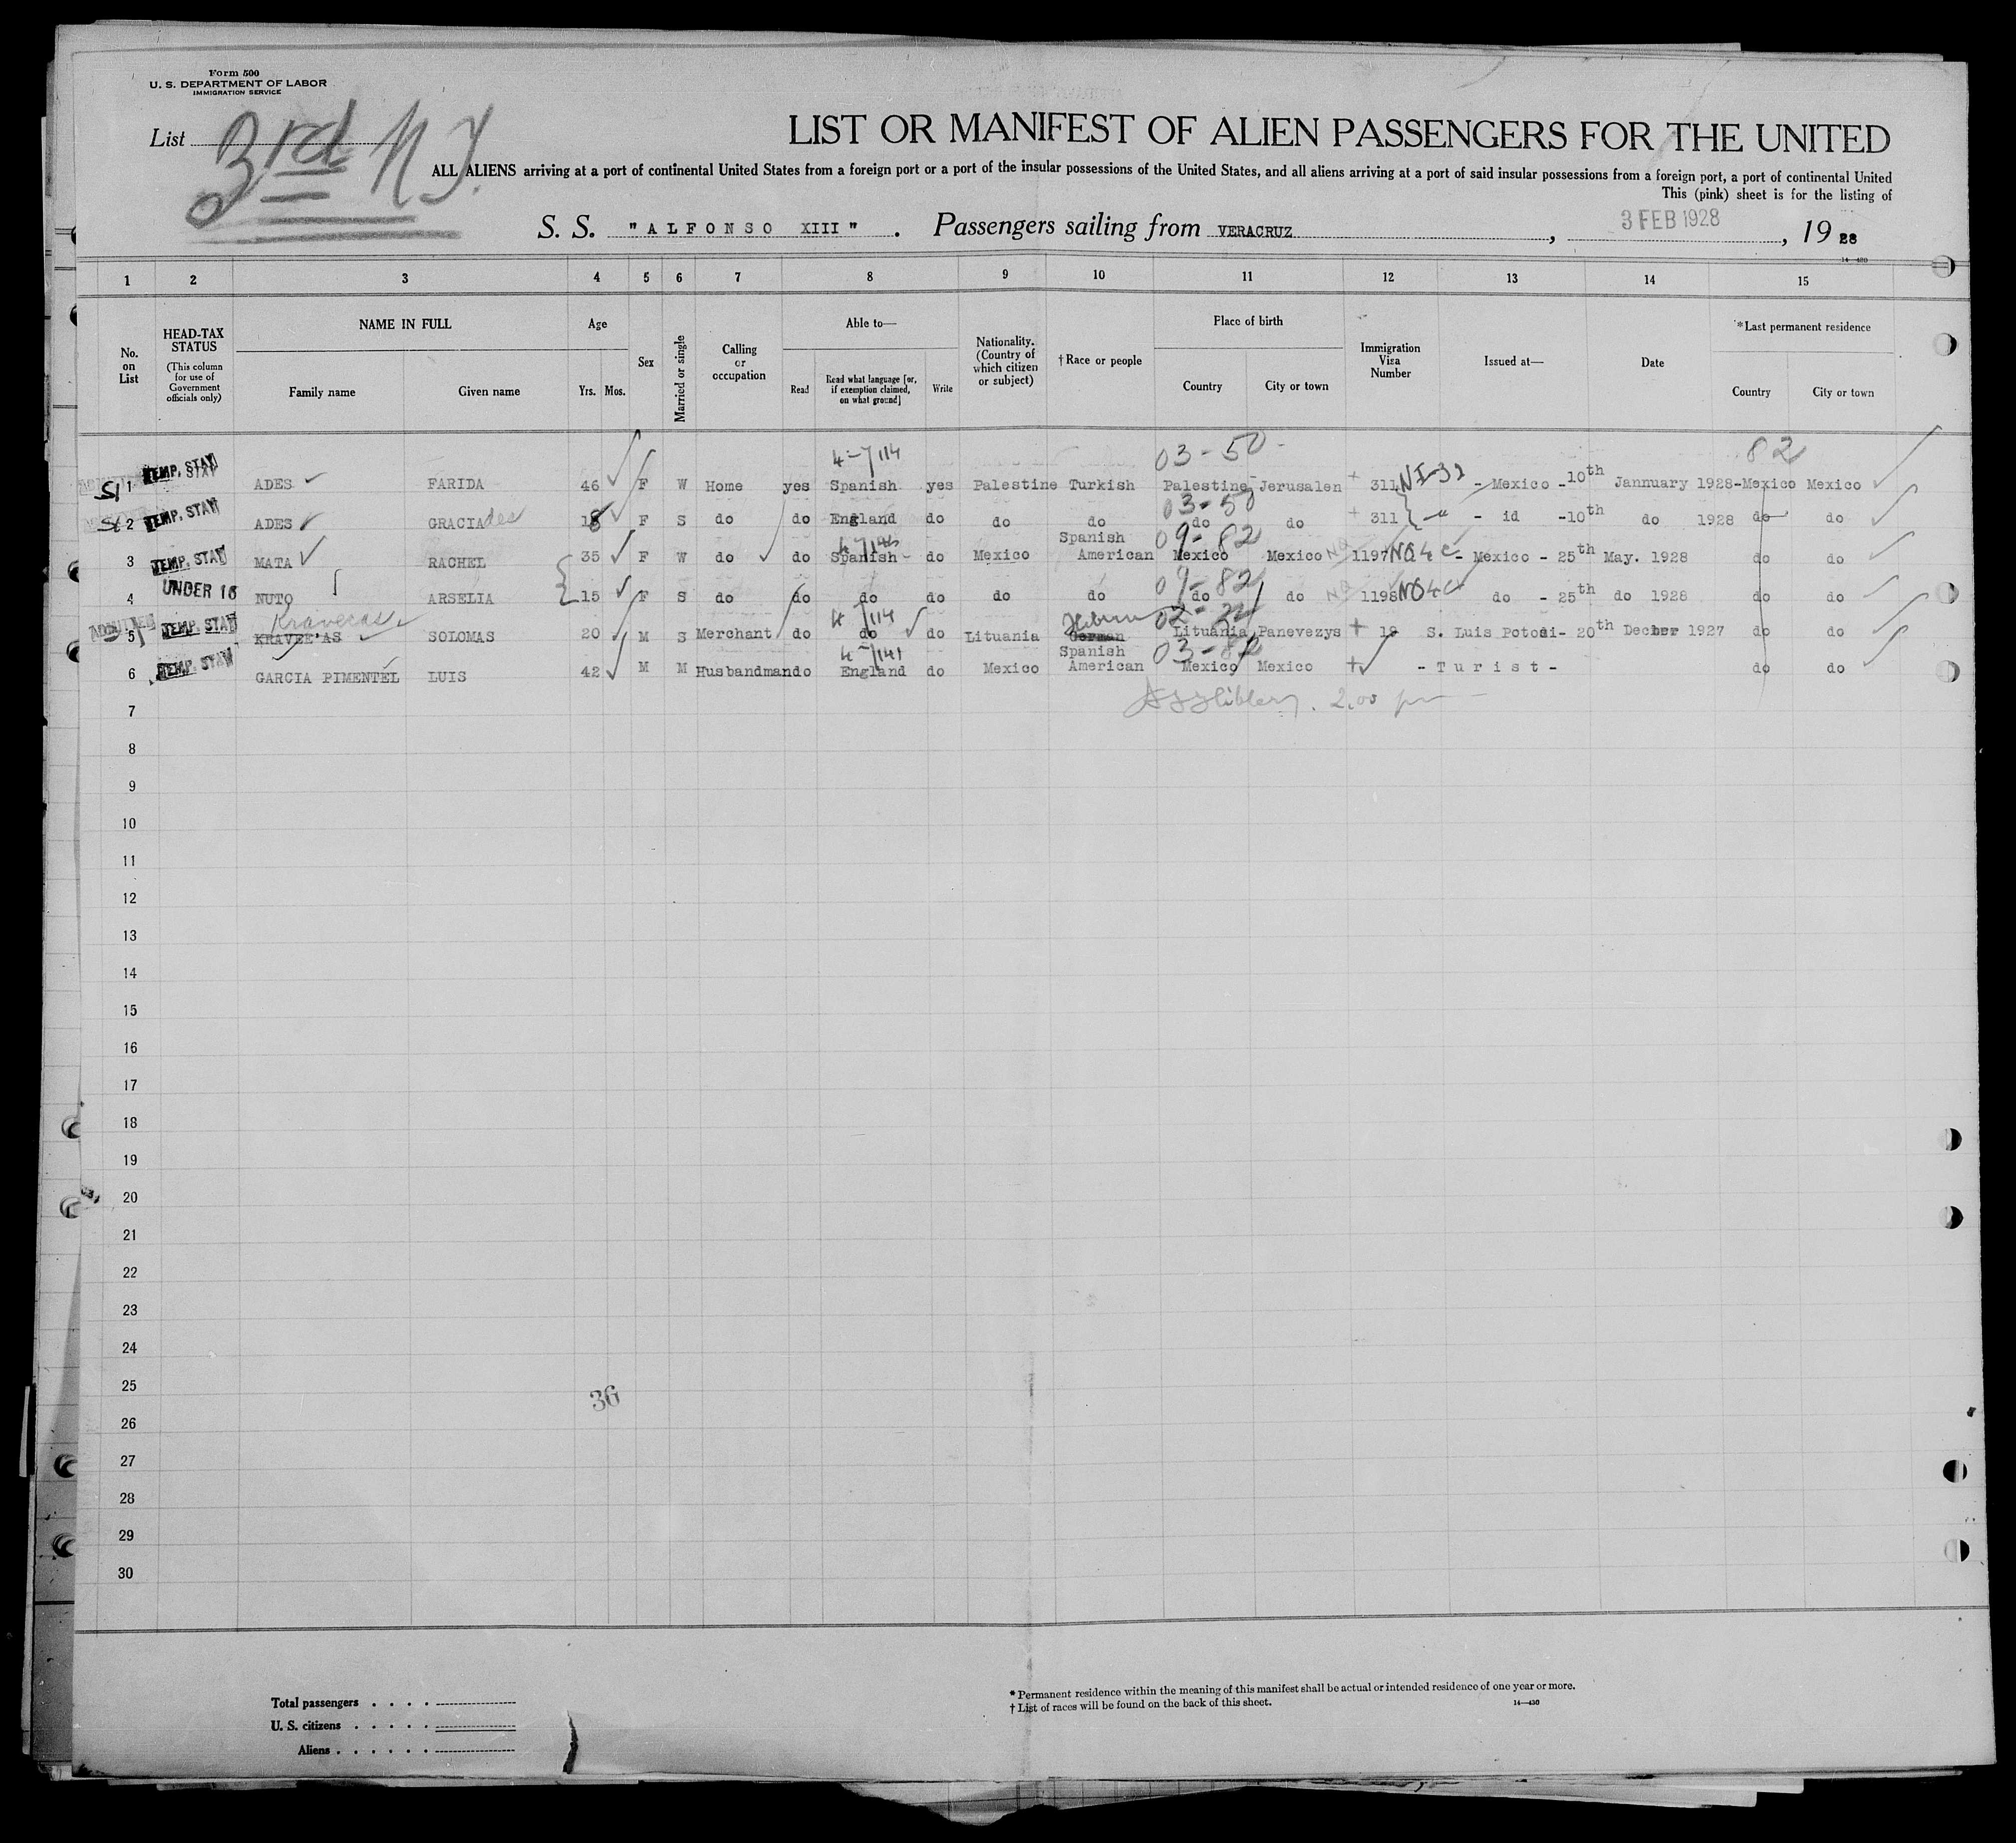 Form 500
U. S. DEPARTMENT OF LABOR
IMMIGRATION SERVICE
List 3rd N.Y.
LIST OR MANIFEST OF ALIEN PASSENGERS FOR THE UNITED
ALL ALIENS arriving at a port of continental United States from a foreign port or a port of the insular possessions of the United States, and all aliens arriving at a port of said insular possessions from a foreign port, a port of continental United
This (pink) sheet is for the listing of
S. S. "ALFONSO XIII" . Passengers sailing from VERACRUZ , 3 FEB 1928 , 19 28
14—430
1 2 3 4 5 6 7 8 9 10 11 12 13 14 15
No. on List
HEAD-TAX STATUS (This column for use of Government officials only)
NAME IN FULL
Family name Given name
Age
Yrs. Mos.
Sex
Married or single
Calling or occupation
Able to—
Read Read what language [or, if exemption claimed, on what ground] Write
Nationality. (Country of which citizen or subject)
†Race or people
Place of birth
Country City or town
Immigration Visa Number
Issued at—
Date
*Last permanent residence
Country City or town
4-7/114 03-50 82
SI 1 TEMP. STAY ADES FARIDA 46 F W Home yes Spanish yes Palestine Turkish Palestine Jerusalen 311 NI-32 - Mexico -10th Jannuary 1928-Mexico Mexico
03-50
SI 2 TEMP. STAY ADES GRACIA 18 F S do do England do do do do do 311 - id -10th do 1928 do do
Spanish 09-82
3 TEMP. STAY MATA RACHEL 35 F W do do Spanish- do Mexico American Mexico Mexico 1197 NQ4c - Mexico - 25th May. 1928 do do
09-82
4 UNDER 16 NUTO ARSELIA 15 F S do do do do do do do do 1198 NQ4c do - 25th do 1928 do do
Kraveras 4-7/114 Hebrew 02-24
5 ADMITTED TEMP. STAY KRAVEE'AS SOLOMAS 20 M S Merchant do do do Lituania German Lituania Panevezys 18 S. Luis Potosi- 20th Decber 1927 do do
4-7/141 Spanish 03-82
6 TEMP. STAY GARCIA PIMENTEL LUIS 42 M M Husbandman do England do Mexico American Mexico Mexico -Turist- do do
7 2.00 pm
8
9
10
11
12
13
14
15
16
17
18
19
20
21
22
23
24
25
36
26
27
28
29
30
Total passengers
U. S. citizens
Aliens
* Permanent residence within the meaning of this manifest shall be actual or intended residence of one year or more.
† List of races will be found on the back of this sheet.
14—430